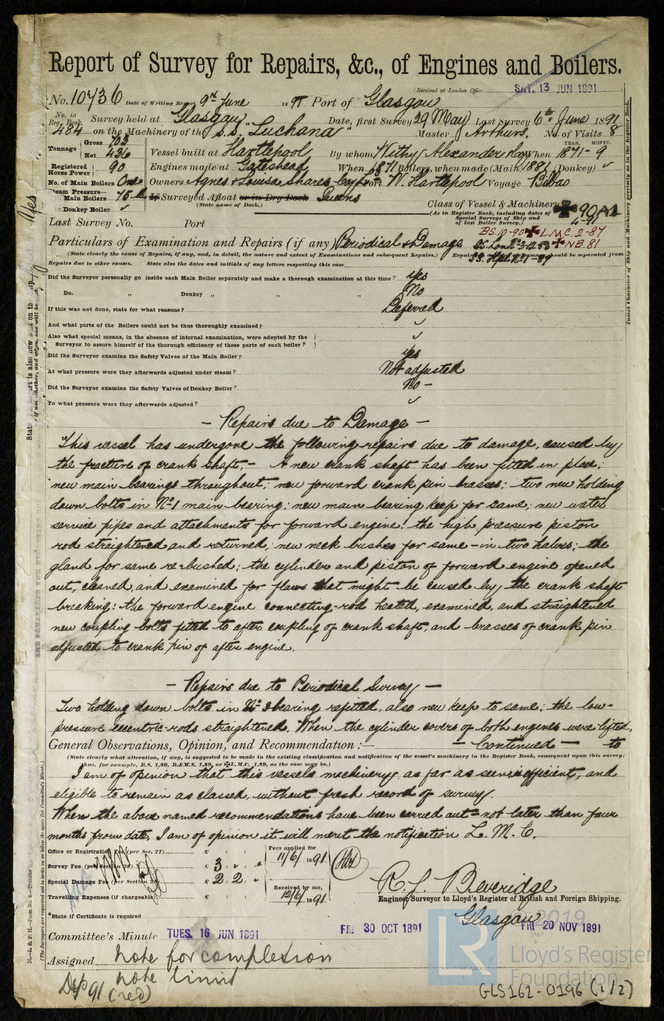 Report of Survey for Repairs, &c., of Engines and Boilers.
Received at London Office SAT. 13 JUN 1891
No. 10736 Date of Writing Report 9th June 1891 Port of Glasgow
No. in Reg. Book 484 Survey held at Glasgow Date, first Survey 29 May Last Survey 6th June 1891
on the Machinery of the S.S. "Luchana" Master Arthurs. No of Visits 8
Tonnage Gross 703 Net 436 Vessel built at Hartlepool By whom Withy Alexander & Co When 1871 - 9
Registered Horse Power 90 Engines made at Gateshead When 1871 Boilers, when made (Main) 1882 (Donkey) ✓
No. of Main Boilers One Owners Port W. Hartlepool Voyage Bilbao
Steam Pressure Main Boilers 70 lb If Surveyed Afloat or in Dry Dock
(State name of Dock.)
Donkey Boiler ✓
Class of Vessel & Machinery ✠ 90A1
(As in Register Book, including dates of Special Surveys of Ship and of last Boiler Survey.)
Last Survey No. Port
BS.11-90 ✠ L.M.C 2-87
✠ N.B. 81
Particulars of Examination and Repairs (if any) Periodical & Damage
(State clearly the cause of Repairs, if any, and, in detail, the nature and extent of Examinations and subsequent Repairs.)
Repairs due to other causes. State also the dates and initials of any letters respecting this case
Did the Surveyor personally go inside each Main Boiler separately and make a thorough examination at this time? Yes
Do. " Donkey " " " " No
If this was not done, state for what reasons? Deferred
And what parts of the Boilers could not be thus thoroughly examined? ✓
Also what special means, in the absence of internal examination, were adopted by the Surveyor to assure himself of the thorough efficiency of those parts of each boiler? ✓
Did the Surveyor examine the Safety Valves of the Main Boiler? Yes
At what pressure were they afterwards adjusted under steam? Not adjusted
Did the Surveyor examine the Safety Valves of Donkey Boiler? No -
To what pressure were they afterwards adjusted? ✓
- Repairs due to Damage -
This vessel has undergone the following repairs due to damage, caused by
the fracture of crank shaft. - A new crank shaft has been fitted in place;
new main bearings throughout; new forward crank pin brasses; two new holding
down bolts in No 1 main bearing; new main bearing keep for same; new water
service pipes and attachments for forward engine; the high pressure piston
rod straightened and returned; new neck bushes for same - in two halves; the
gland for same re-bushed; the cylinder and piston of forward engine opened
out, cleaned, and examined for flaws that might be caused by the crank shaft
breaking; the forward engine connecting-rod heated, examined, and straightened
new coupling bolts fitted to after coupling of crank shaft, and brasses of crank pin
adjusted to crank pin of after engine.
- Repairs due to Periodical Survey -
Two holding down bolts in No 3 bearing refitted, also new keep to same; the low-
pressure eccentric rods straightened. When the cylinder covers of both engines were lifted,
General Observations, Opinion, and Recommendation :- - Continued - to
(State clearly what alteration, if any, is suggested to be made in the existing classification and notification of the vessel's machinery in the Register Book, consequent upon this survey; thus, for example, B.S. 1,89, B.&M.S. 1,89, or ✠L.M.C. 1,89, as the case may be.)
I am of opinion that this vessels machinery, as far as seen is efficient, and
eligible to remain as classed, without fresh record of survey.
When the above named recommendations have been carried out - not later than four
months from date. I am of opinion it will merit the notification L.M.C.
Office or Registration Fee (per Sec. 27) £
Fees applied for 11/6/1891
Survey Fee £ 3
Special Damage Fee £ 2 2
Received by me, 12/6/1891
Travelling Expenses (if chargeable) £
R. L. Beveridge
Engineer Surveyor to Lloyd's Register of British and Foreign Shipping.
*State if Certificate is required
Glasgow
Committee's Minute TUES. 16 JUN 1891 FRI 30 OCT 1891 FRI 20 NOV 1891
Assigned note for completion
note limit
Dep 91 (red)
© 2019
LR Lloyd's Register Foundation
GLS162-0196 (1/2)